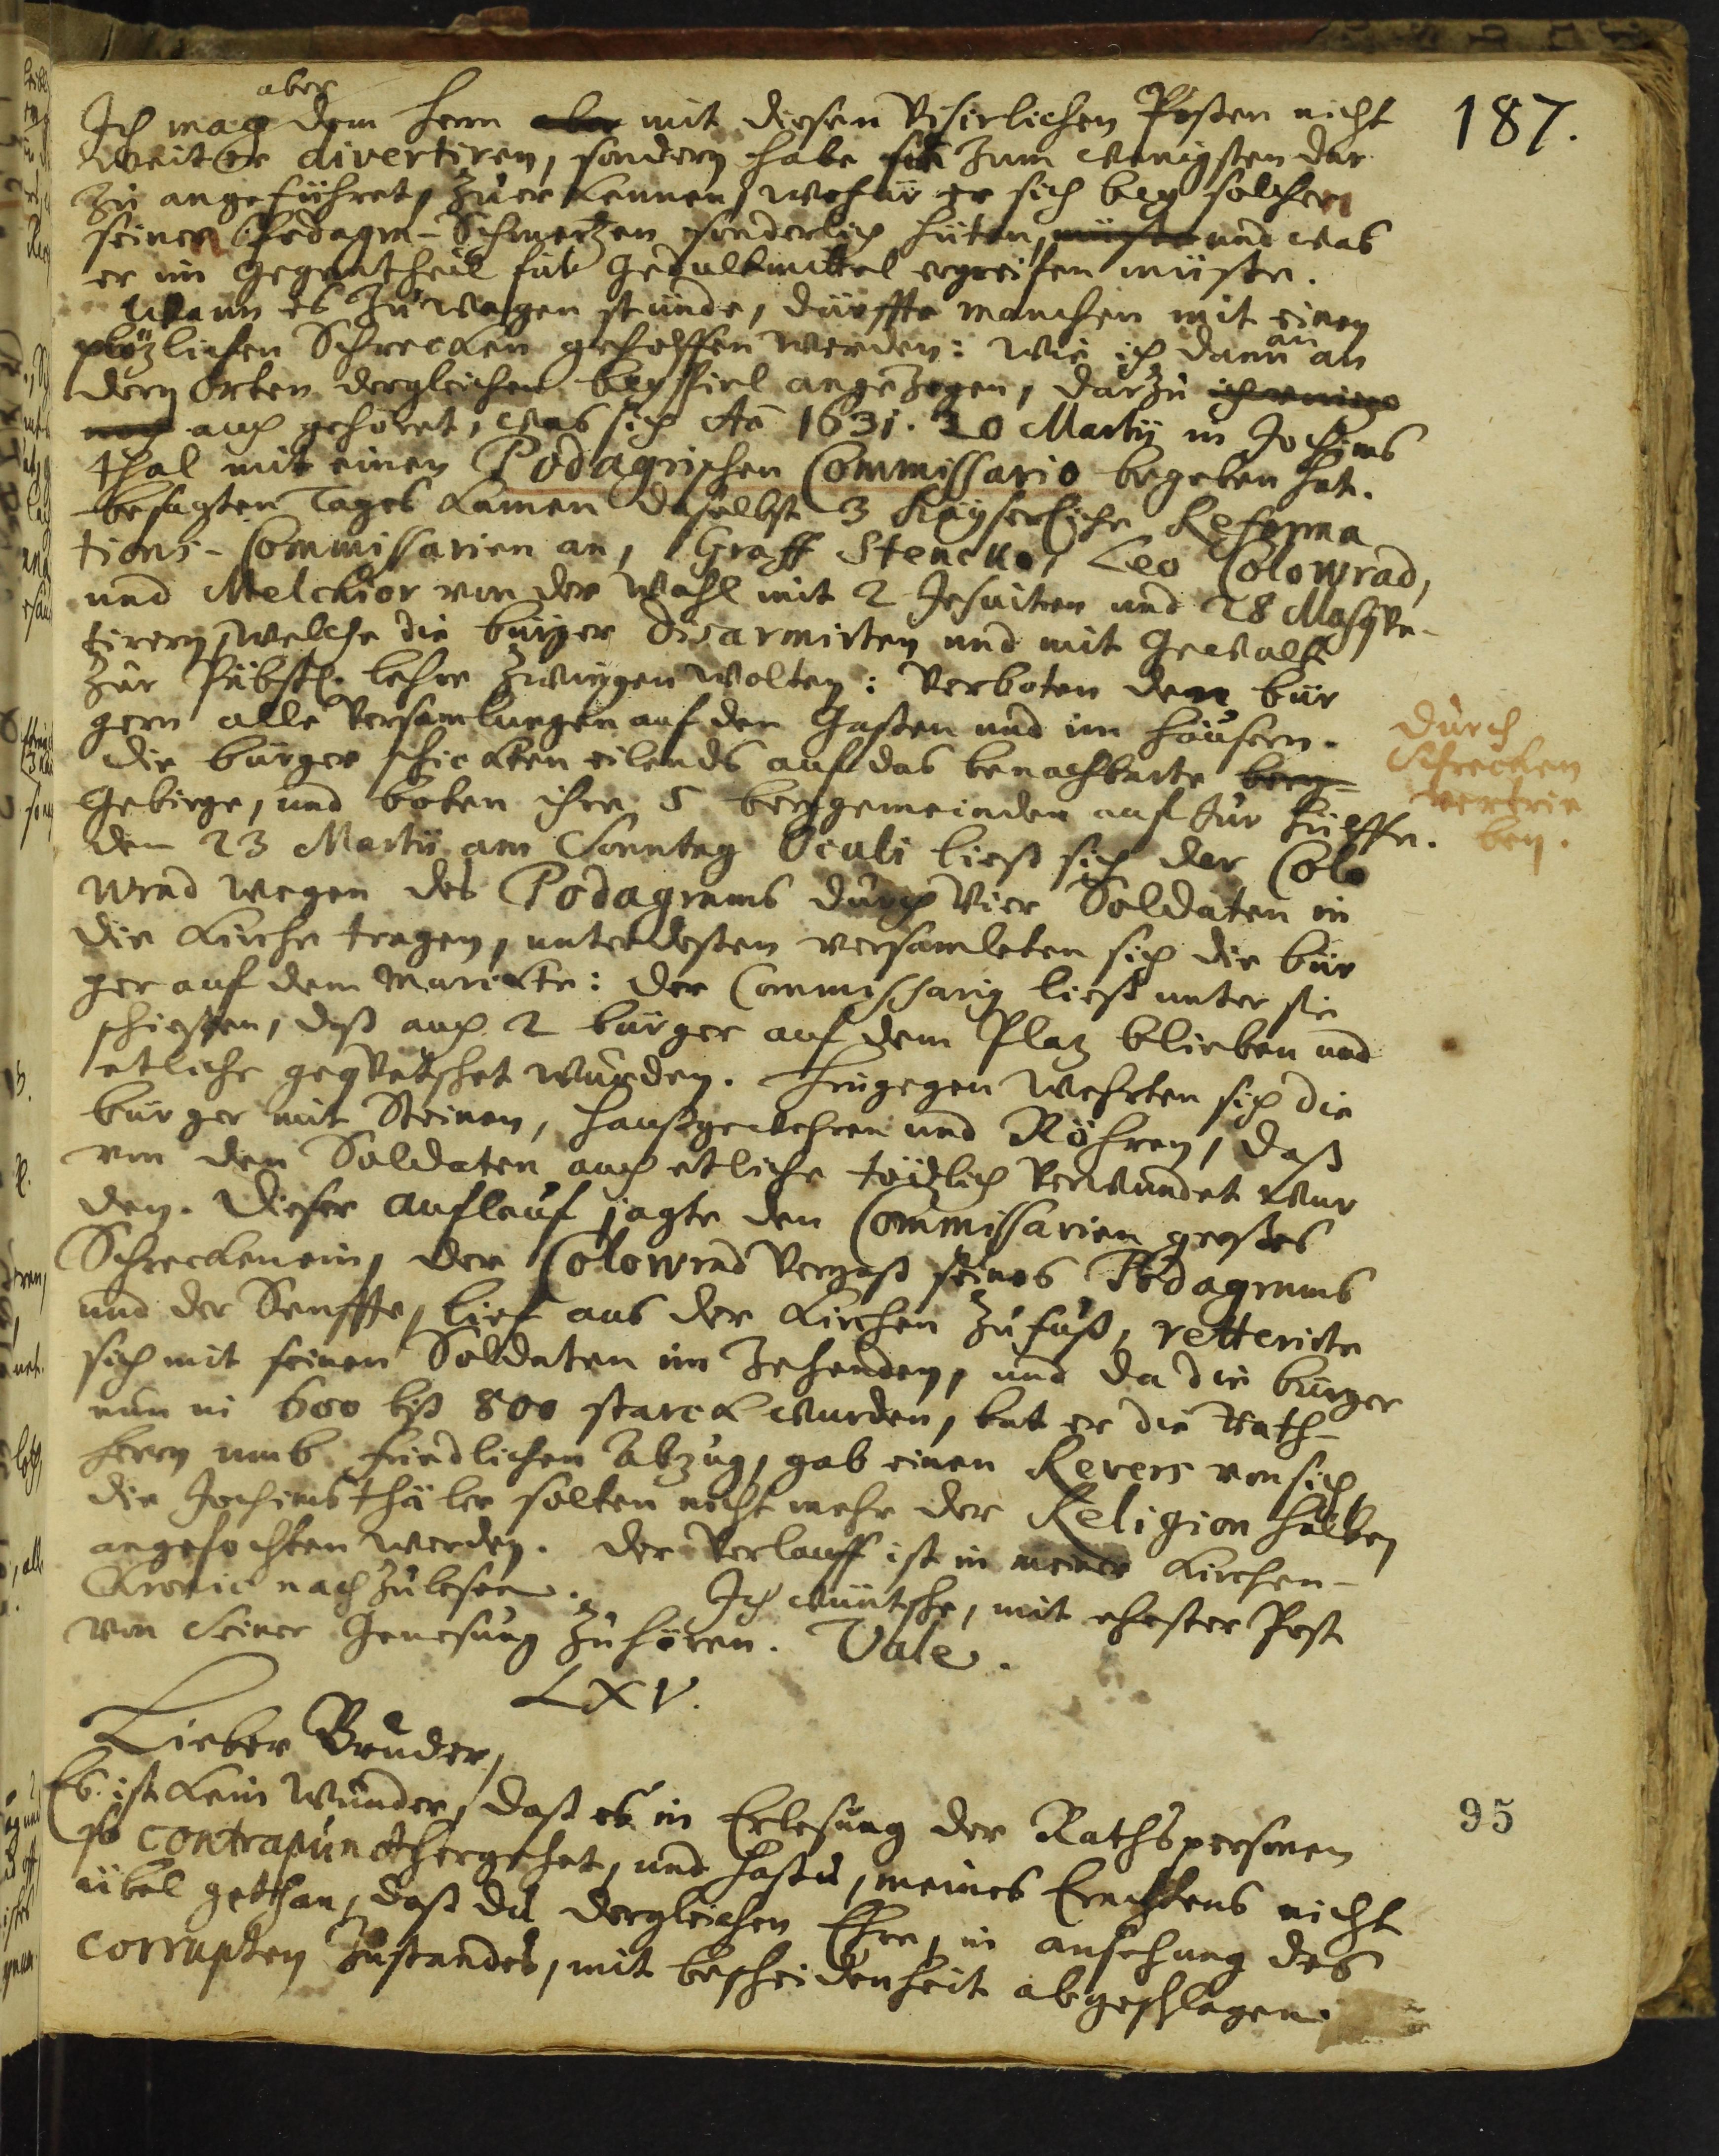 187.
aber
Ich mag dem Herrn aber mit diesen visirlichen Posten nicht
weiter divertiren, sondern habe sie zum wenigsten dar
zu angeführet, zu erkennen, wofür er sich bey solchen
seinen Podagra-Schmertzen sonderlich hüten, müste und was
er im gegentheil für Gedultmittel ergreifen müste.
Wann es zu wagen stünde, dürffte manchen mit einen
plözlichen Schrecken geholffen werden: wie ich dann an
an
dern Orten dergleichen beyspiel angezogen, darzu
noch auch gehöret, was sich Ao 1631. 20 Martij in Jochims
thal mit einen Podagrischen Commissario begeben hat.
besagten Tages kamen daselbst 3 Kayserliche Reforma
tions-Commissarien an, Graff Stencko, Leo Colowrad,
und Melchior von der Wahl mit 2 Jesuiten und 28 Musqve-
tirern, welche die bürger disarmirten und mit Gewalt
zur Päbstl. lehre zwingen wolten: Verboten den bür
gern alle Versamlungen auf der Gassen und im Häusern.
die bürger schickten eilends auf das benachbarte berg-
Gebirge, und boten ihre 5 berggemeinden auf zur Hülffe.
durch
Schrecken
vertrie
ben.
den 23 Martij am Sonntag Oculi liess sich der Colo
wrad wegen des Podagrams durch Vier Soldaten in
die Kirche tragen, unterdessen versamleten sich die bür
ger auf dem Marckte: der Commissarig liess unter sie
schiessen, dass auch 2 bürger auf dem Platz blieben und
etliche geqvetschet wurden. Hingegen wehrten sich die
bürger mit Steinen, haussgewehren und Röhren, dass
von den Soldaten auch etliche tödlich Verwundet wur
den. Dieser Auflauf jagte den Commissarien grosses
Schrecken ein, der Colowrad Vergass seines Podagrams
und der Senffte, lief aus der Kirchen zu fuss, retterirte
sich mit seinen Soldaten im Zehenden, und da die bürger
nun in 600 biss 800 starck wurden, bat er die Rath-
herrn umb friedlichen Abzug, gab einen Revers von sich,
die Jochimsthäler solten nicht mehr der Religion halben
angefochten werden. Der Verlauff ist in meiner Kirchen-
Kronic nach zu lesen. Ich wüntsche, mit ehester Post
von Seiner Genesung zu hören. Vale.
LXV.
Lieber Bruder,
Es ist kein Wunder, dass es in Erlesung der Rathspersonen
so contrapunct hergehet, und hastu, meines Erachtens nicht
übel gethan, dass du dergleichen Ehre, in ansehung des
corrupten Zustandes, mit bescheidenheit abgeschlagen.
95